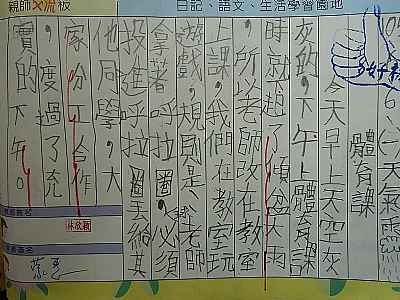 親師交流板
日記、語文、生活學習園地
6.(一)天氣:雨
體育課
今天早上天空灰
灰的,下午上體育課
時就起了傾盆大雨
,所以老師改在教室
上課,我們在教室玩
遊戲,規則是:老師
拿著呼拉圈,球必須
投進呼拉圈丟給其
他同學,大
家分工合作
,度過了充
實的下午。